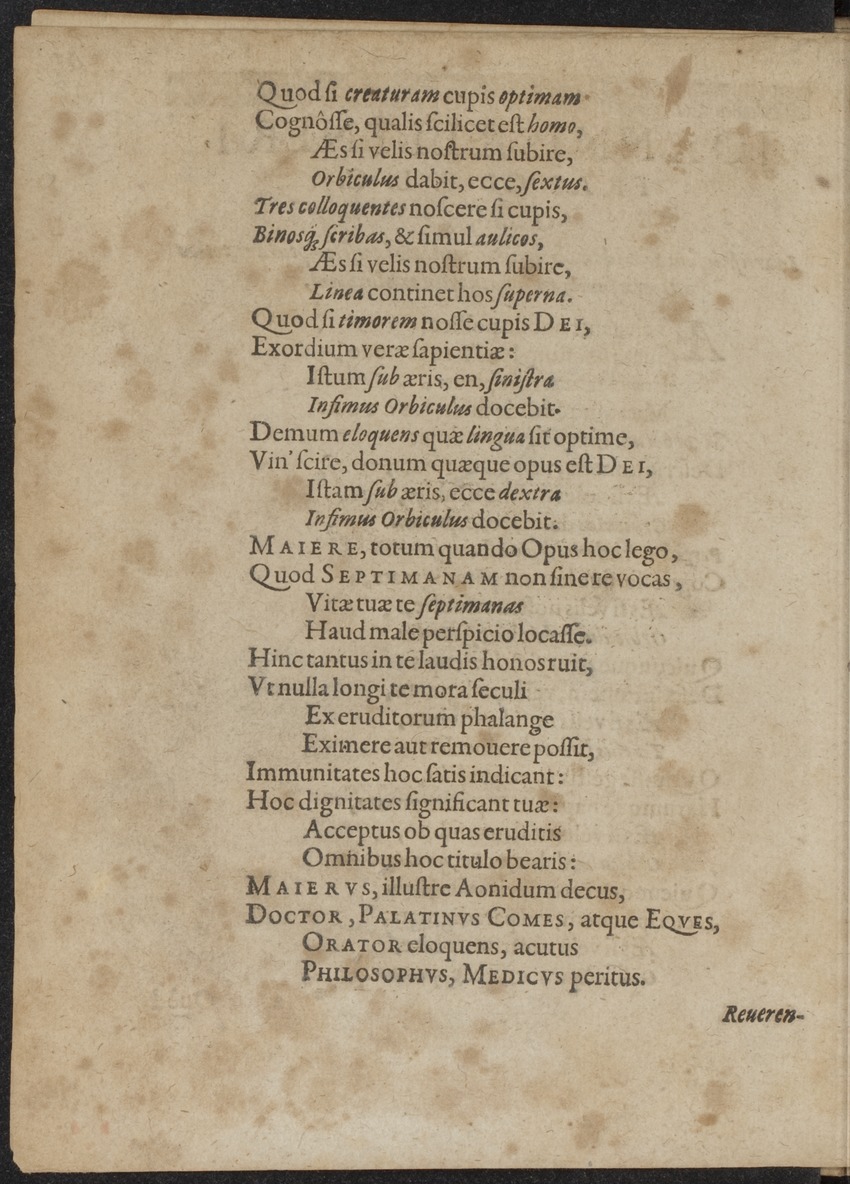 Quod ſi creaturam cupis optimam
Cognôſſe, qualis ſcilicet eſt homo,
Æs ſi velis noſtrum ſubire,
Orbiculus dabit, ecce, ſextus.
Tres colloquentes noſcere ſi cupis,
Binosq́; ſcribas, & ſimul aulicos,
Æs ſi velis noſtrum ſubire,
Linea continet hos ſuperna.
Quod ſi timorem noſſe cupis DEI,
Exordium veræ ſapientiæ:
Iſtum ſub æris, en, ſiniſtra
Infimus Orbiculus docebit.
Demum eloquens quæ lingua ſit optime,
Vin' ſcire, donum quæque opus eſt DEI,
Iſtam ſub æris, ecce dextra
Infimus Orbiculus docebit.
MAIERE, totum quando Opus hoc lego,
Quod SEPTIMANAM non ſine re vocas,
Vitæ tuæ te ſeptimanas
Haud male perſpicio locaſſe.
Hinc tantus in te laudis honos ruit,
Vt nulla longi te mora ſeculi
Ex eruditorum phalange
Eximere aut remouere poſſit,
Immunitates hoc ſatis indicant:
Hoc dignitates ſignificant tuæ:
Acceptus ob quas eruditis
Omnibus hoc titulo bearis:
MAIERVS, illuſtre Aonidum decus,
DOCTOR, PALATINVS COMES, atque EQVES,
ORATOR eloquens, acutus
PHILOSOPHVS, MEDICVS peritus.
Reueren-